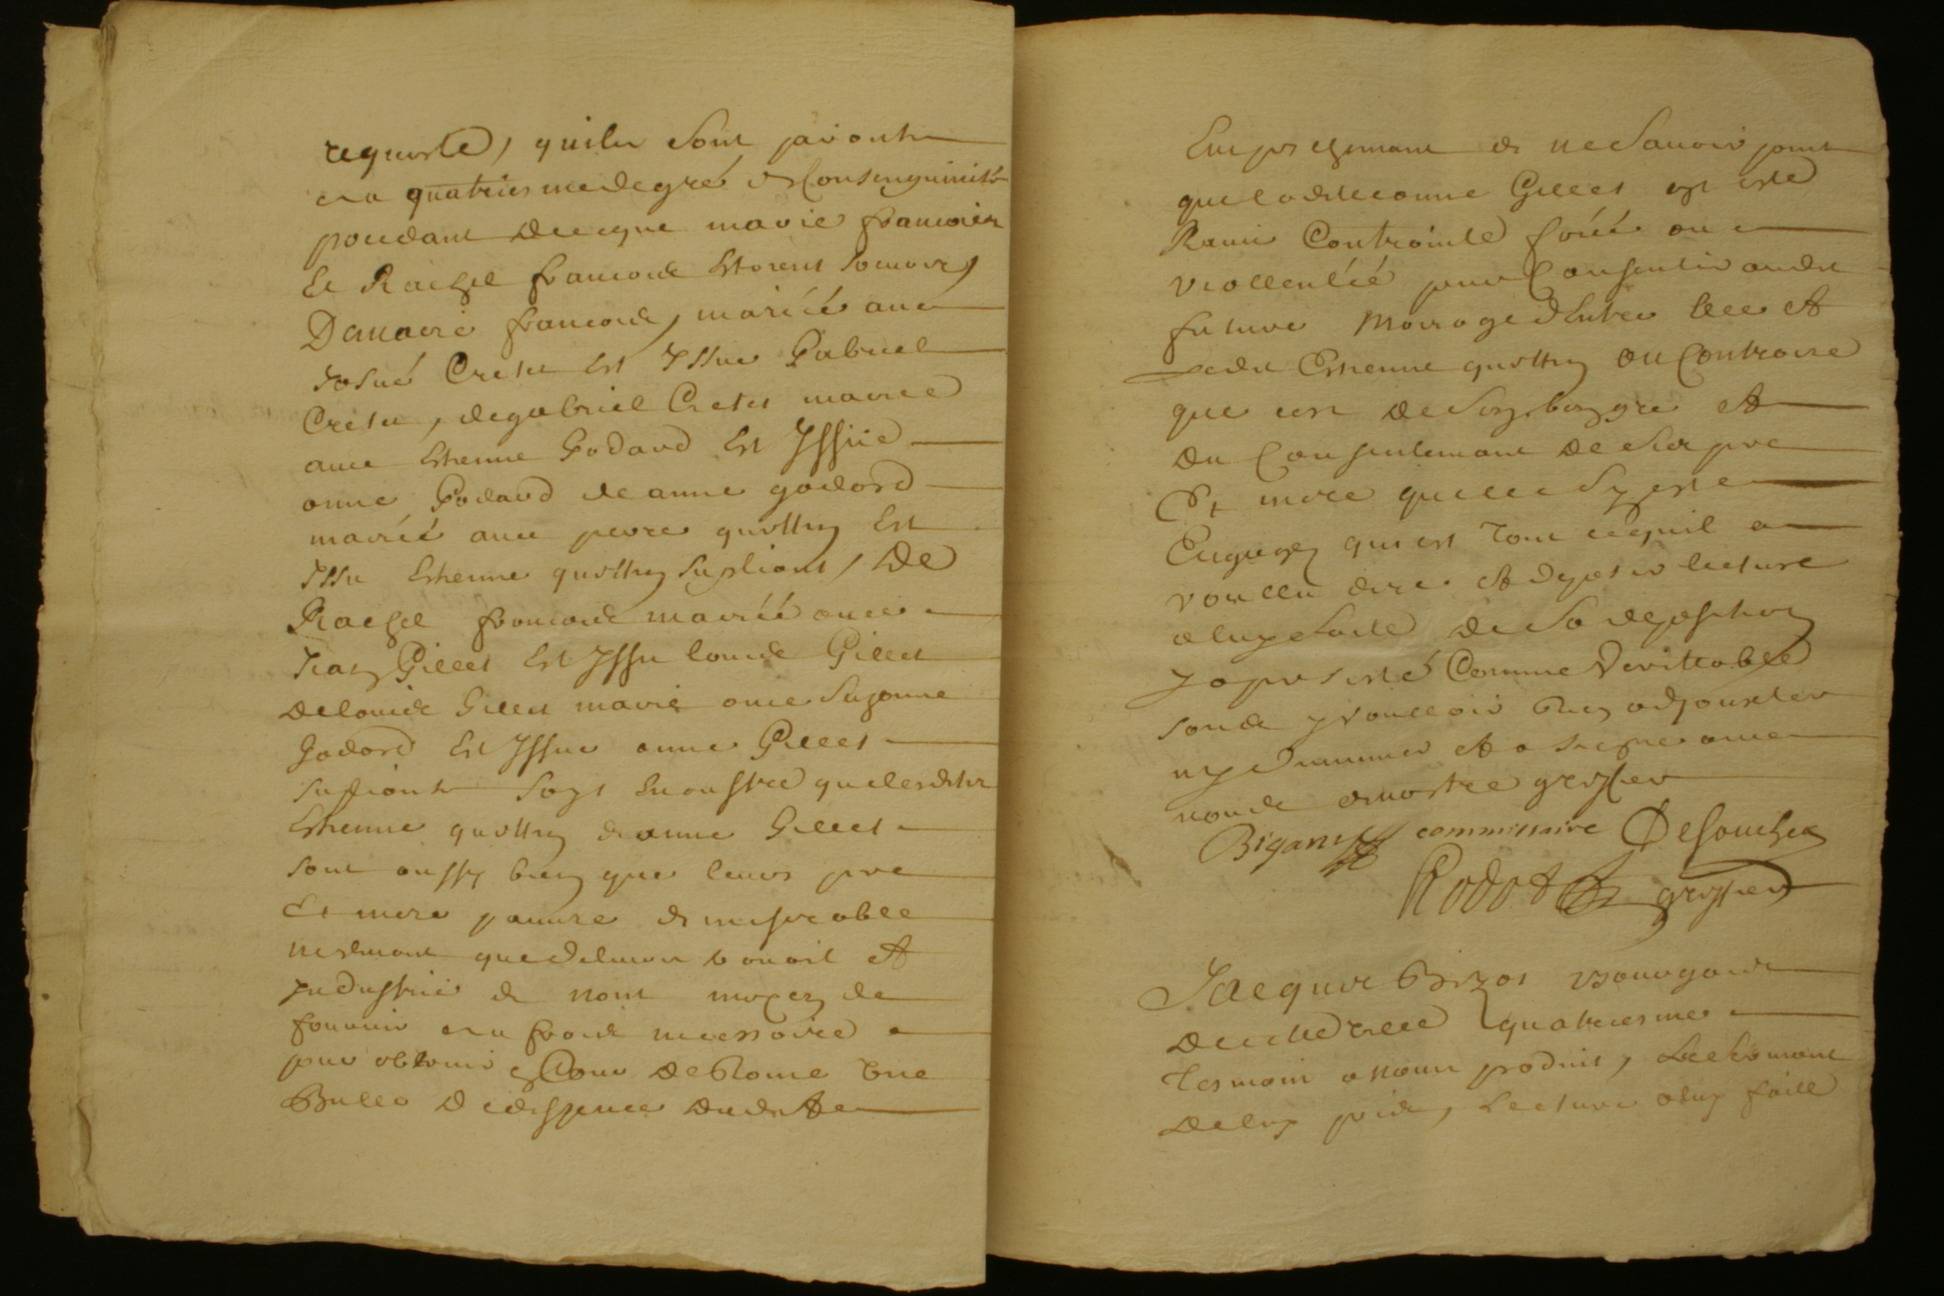 requeste, quilz sont parents
au quatriesme degré de Consenguinité
pendant de ce que marie francois
Et Rachel francois Estoient soeurs,
De marie francois, mariéé auec
Josué Cretel Est Issue Gabriel
Cretel, de gabriel Cretel mariee
auec Estienne Godard Est Issüe
anne Godard de anne godard
mariéé auec pierre quottin Est
Issu Estienne quottin supliant, De
Rachel francois mariéé auec
Jean Gillet Est Issu Louis Gillet
De louis Gillet marié auec Suzanne
Godard Est Issue anne Gillet
supliante Scayt En oustre que lesdits
Estienne quottin & anne Gillet
sont aussy bien que leurs pere
Et mere pauure & miserable
ne viuant que de leur trauail Et
Industrie & nont moyen de
fournir au frais necessaire
pour obtenir en Cour De Rome Une
Bulle De dispence dudit
Empeschemant & ne Sauoir point
que ladite anne Gillet ayt esté
Rauie Contrainte forcée ou
viollentéé pour Consentir audit
future Mariage d'Entre elle Et
ledit Estienne quottin au Contraire
que cest de son bon gré Et
du Consentemant de ses pere
Et mere quelle sy est
Engagez qui est tout ce quil a
voullu dire Et deposer lecture
a luy faite de sa deposition
y a persisté Comme Veritable
sans y voulloir rien adjouster
ny diminuer Et a signe auec
nous & nostre greffier
Bigant commissaire Desouches
Rodot greffier
Jacques Bizot Bourgois
de cette Ville quatriesme
tesmoin a nous produit, le sermant
de luy pris, lecture a luy faitte